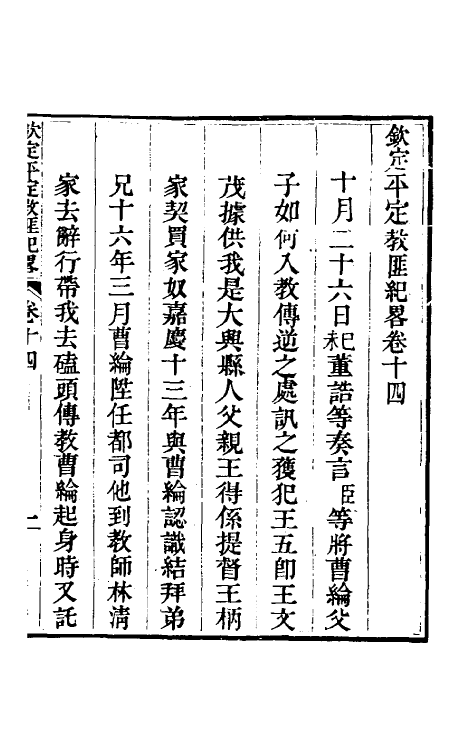 欽定平定教匪紀畧卷十四
十月二十六日未巳董誥等奏言臣等將曹綸父
子如何入教傳逆之處訊之獲犯王五卽王文
茂據供我是大興縣人父親王得係提督王柄
家契買家奴嘉慶十三年與曹綸認識結拜弟
兄十六年三月曹綸陞任都司他到教師林清
家去辭行帶我去磕頭傳教曹綸起身時又託
欽定平定教匪紀畧 卷十四 一